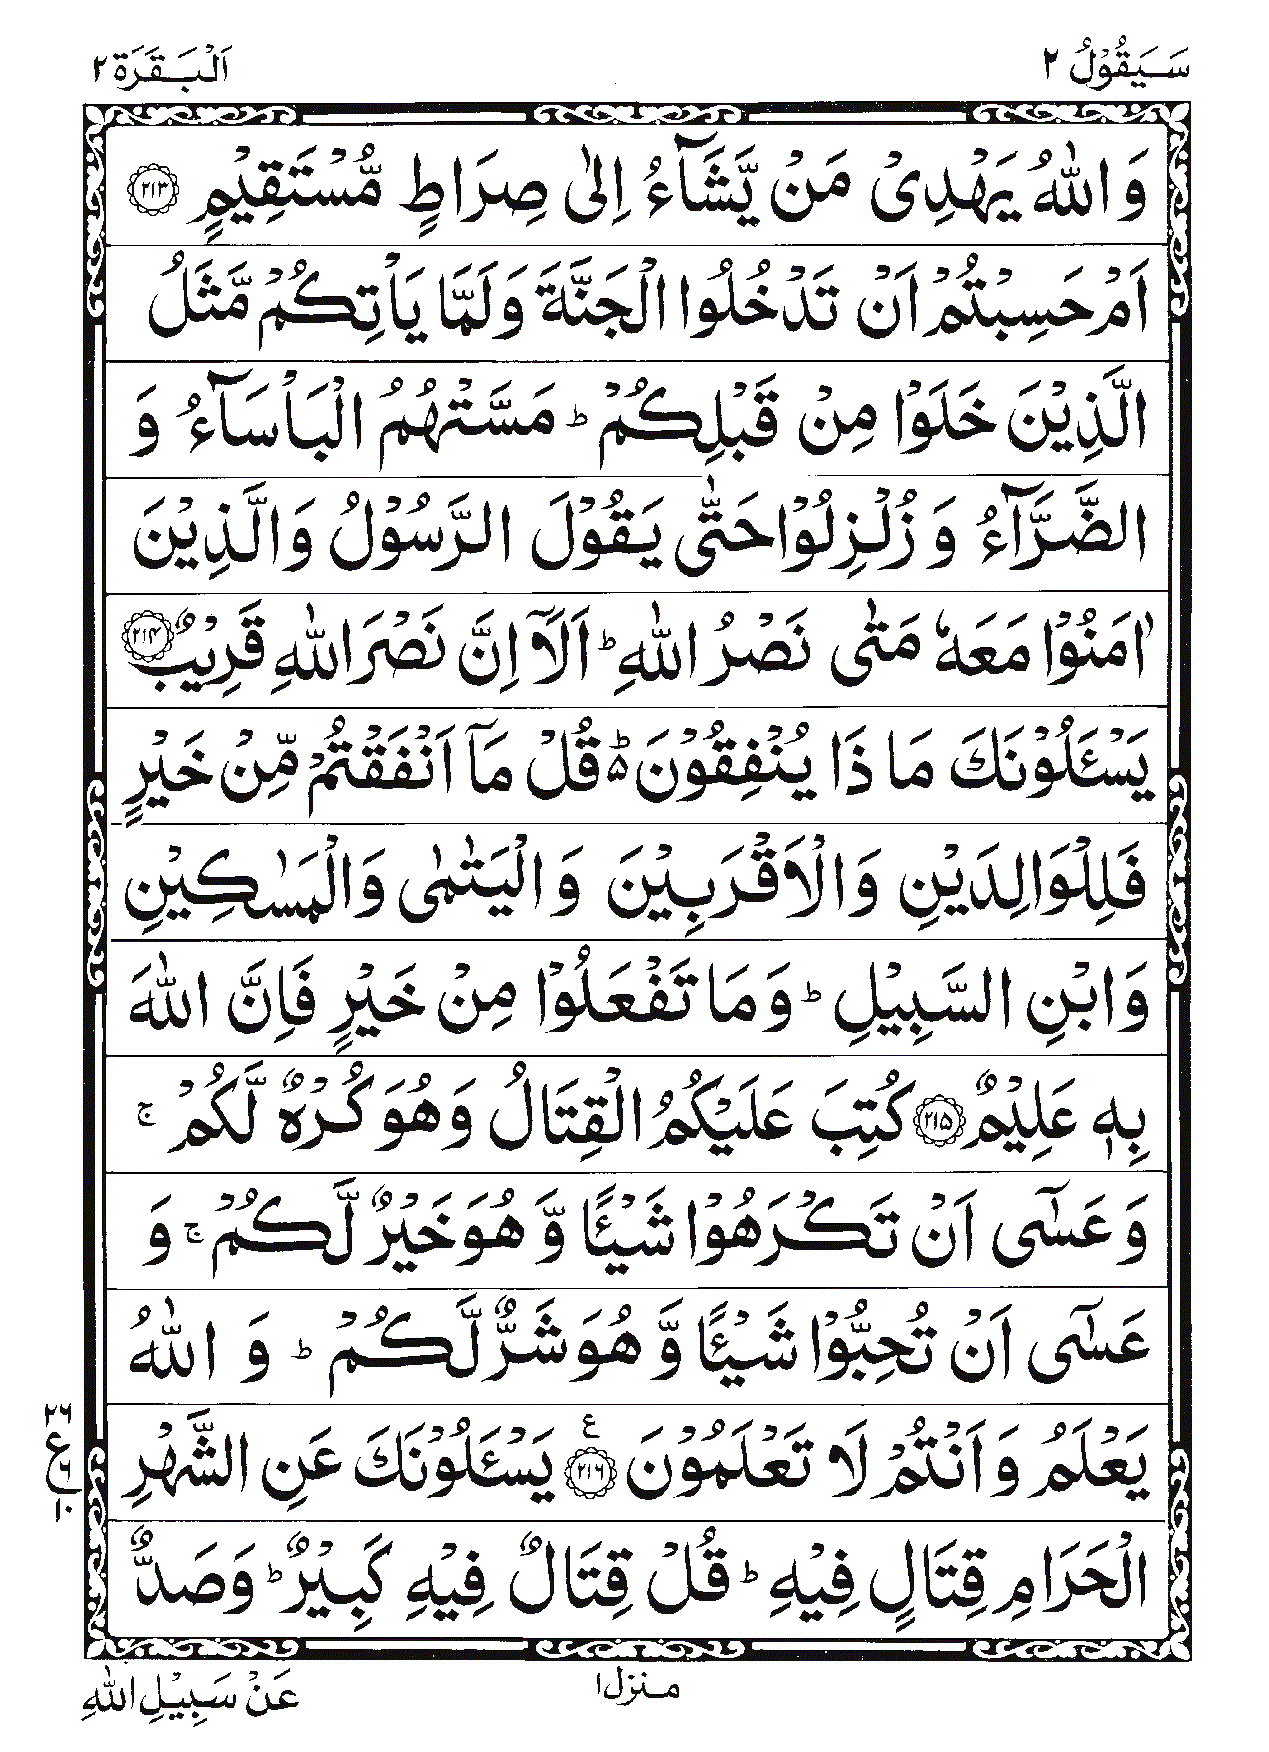 سَيَقُوْلُ ٢
اَلْبَقَرَة ٢
وَ اللّٰهُ يَهْدِىْ مَنْ يَّشَآءُ اِلٰى صِرَاطٍ مُّسْتَقِيْمٍ ٢١٣
اَمْ حَسِبْتُمْ اَنْ تَدْخُلُوا الْجَنَّةَ وَلَمَّا يَاْتِكُمْ مَّثَلُ
الَّذِيْنَ خَلَوْا مِنْ قَبْلِكُمْ ؕ مَسَّتْهُمُ الْبَاْسَآءُ وَ
الضَّرَّآءُ وَ زُلْزِلُوْا حَتّٰى يَقُوْلَ الرَّسُوْلُ وَالَّذِيْنَ
اٰمَنُوْا مَعَهٗ مَتٰى نَصْرُ اللّٰهِ ؕ اَلَاۤ اِنَّ نَصْرَ اللّٰهِ قَرِيْبٌ ٢١٤
يَسْـَٔلُوْنَكَ مَا ذَا يُنْفِقُوْنَ ؕ۵ قُلْ مَاۤ اَنْفَقْتُمْ مِّنْ خَيْرٍ
فَلِلْوَالِدَيْنِ وَالْاَقْرَبِيْنَ وَ الْيَتٰمٰى وَالْمَسٰكِيْنِ
وَابْنِ السَّبِيْلِ ؕ وَ مَا تَفْعَلُوْا مِنْ خَيْرٍ فَاِنَّ اللّٰهَ
بِهٖ عَلِيْمٌ ٢١٥ كُتِبَ عَلَيْكُمُ الْقِتَالُ وَ هُوَ كُرْهٌ لَّكُمْ ۚ
وَ عَسٰٓى اَنْ تَكْرَهُوْا شَيْـًٔا وَّ هُوَ خَيْرٌ لَّكُمْ ۚ وَ
عَسٰٓى اَنْ تُحِبُّوْا شَيْـًٔا وَّ هُوَ شَرٌّ لَّكُمْ ؕ وَ اللّٰهُ
يَعْلَمُ وَ اَنْتُمْ لَا تَعْلَمُوْنَ ٢١٦ ع يَسْـَٔلُوْنَكَ عَنِ الشَّهْرِ
٢٦
ع
٦
١٠
الْحَرَامِ قِتَالٍ فِيْهِ ؕ قُلْ قِتَالٌ فِيْهِ كَبِيْرٌ ؕ وَصَدٌّ
منزل ١
عَنْ سَبِيْلِ اللّٰهِ